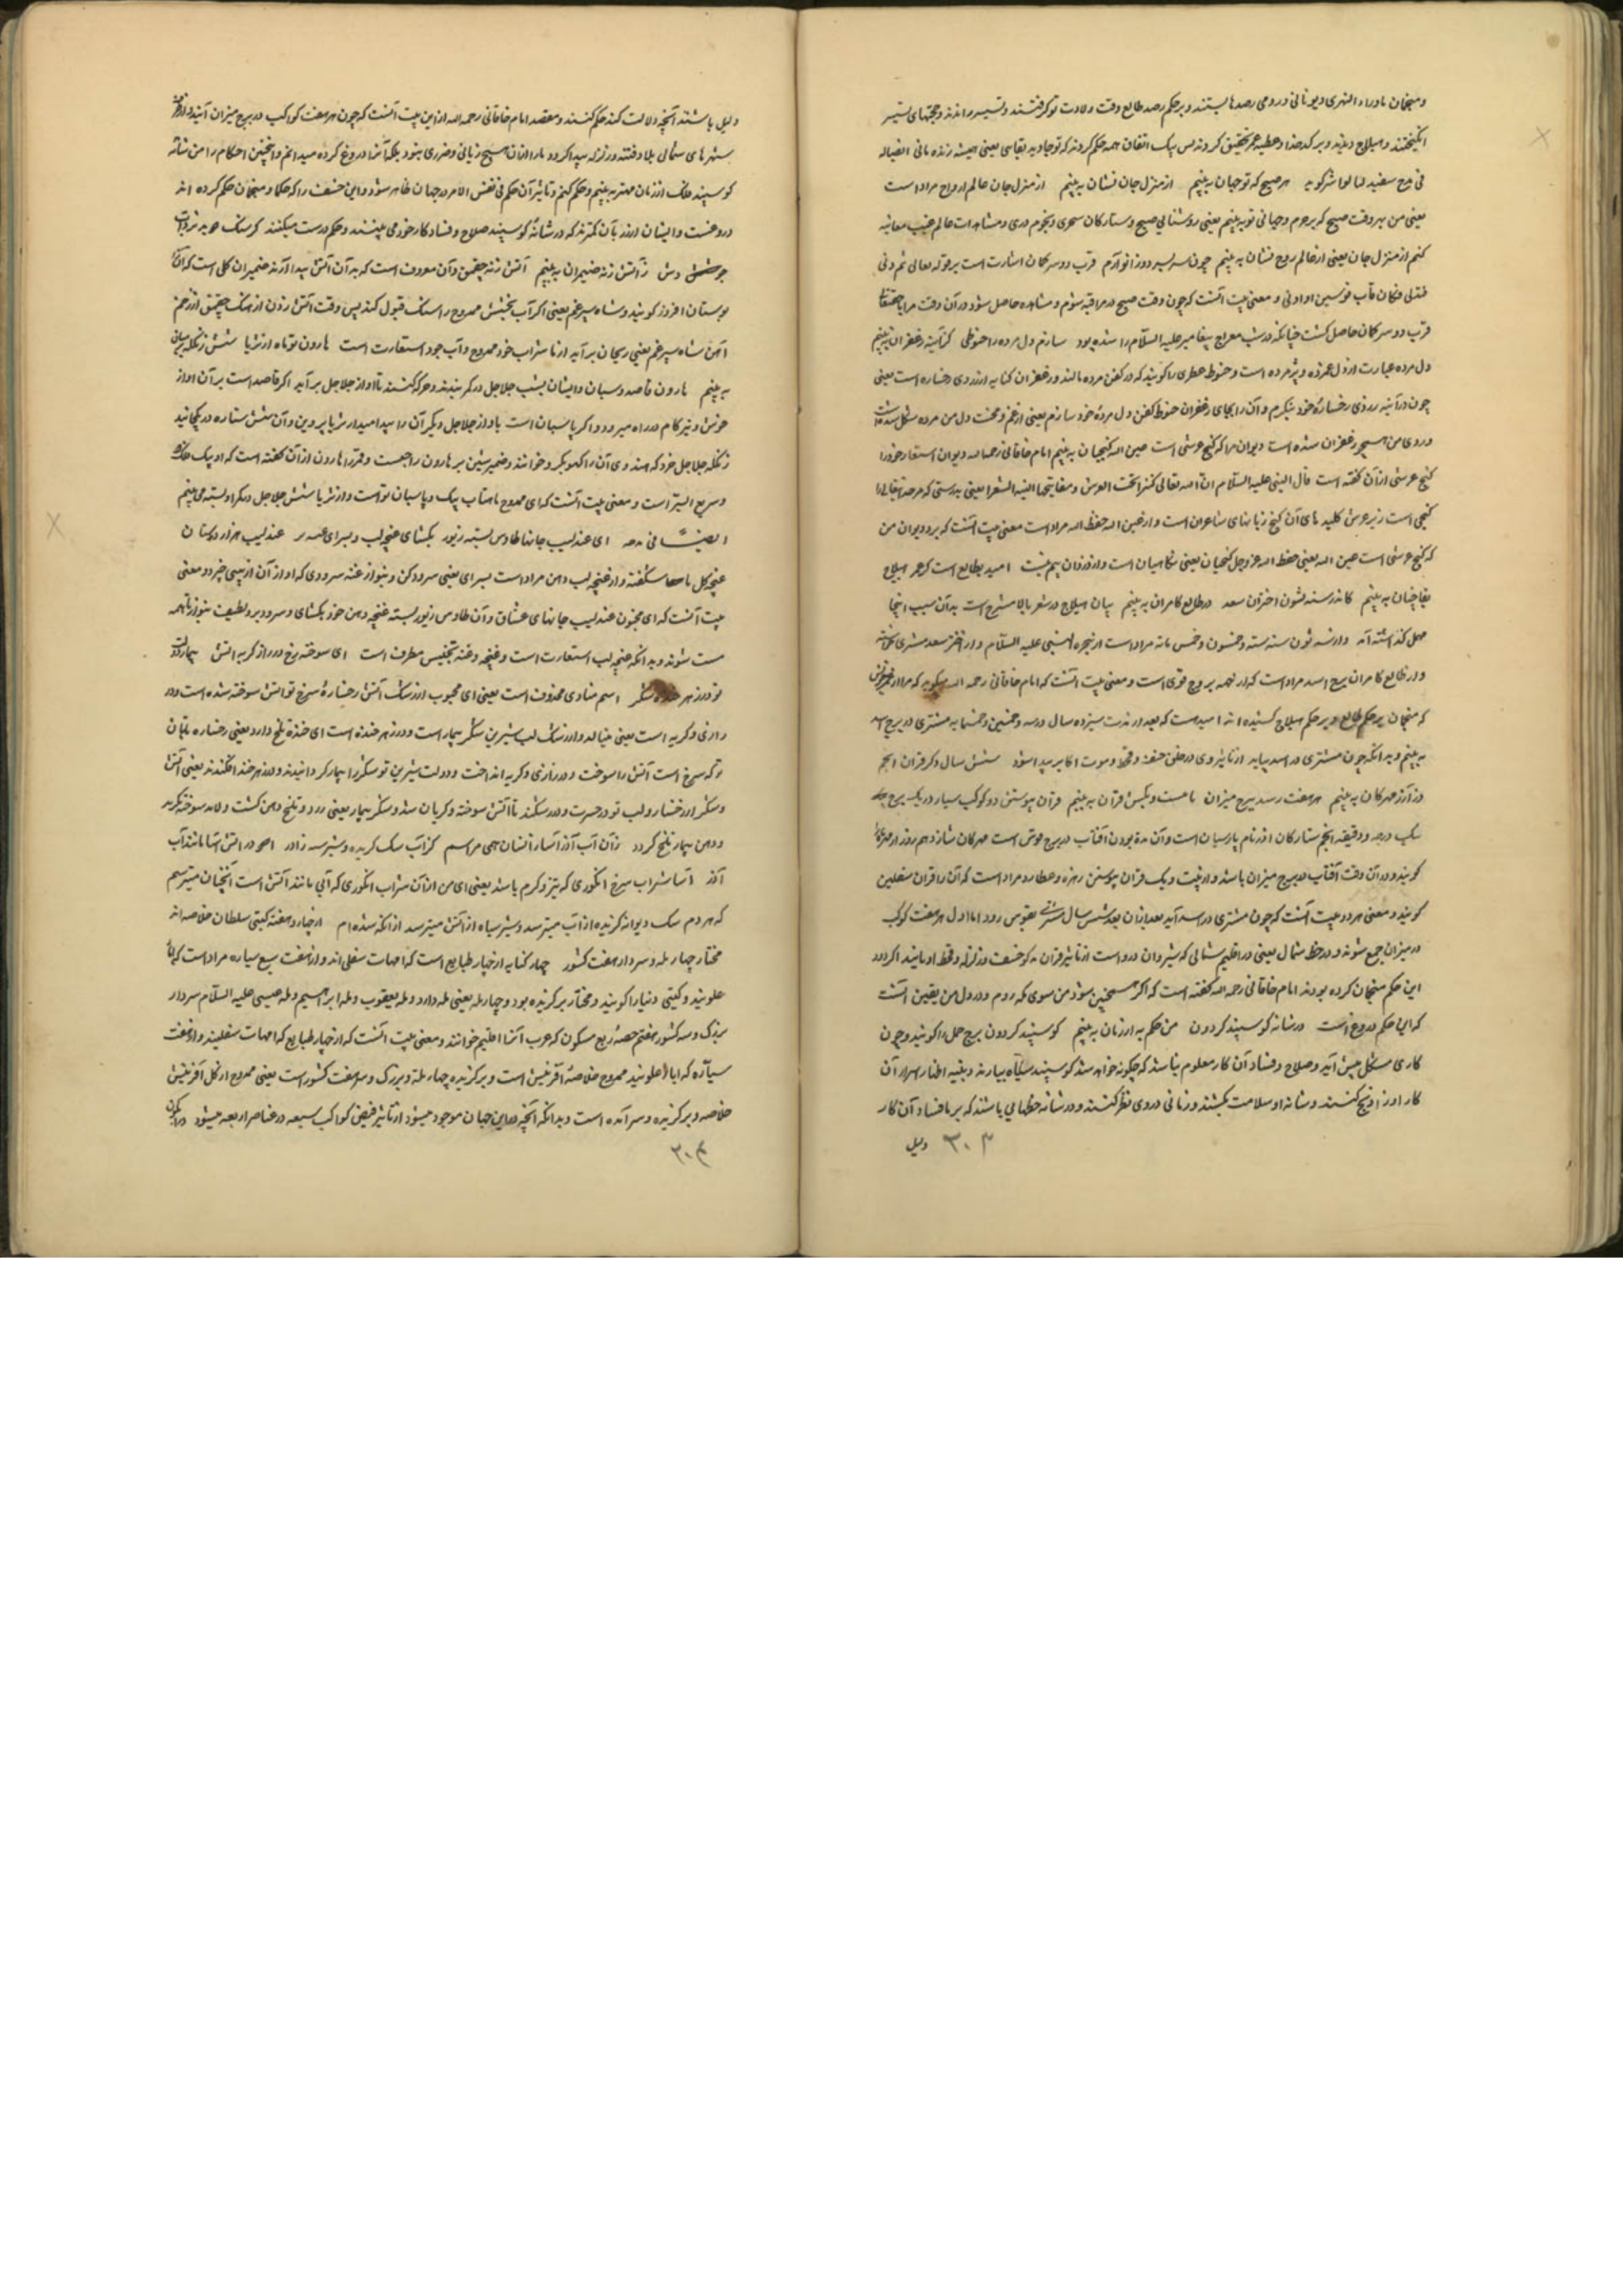 و منجمان ماوراء النهری و یونانی و رومی رصدها بستند و بر حکم رصد طالع وقت ولادت تو گرفتند و تسییر راندند و حجتهای تسییر
انگیختند و هیلاج دیدند و بر کدخدا و عطیه عمر تحقیق کردند پس یک اتفاق همه حکم کردند که تو جاوید بقایی یعنی همیشه زنده مانی ایضا له
فی مدح سفید لما لوا شر گوید هر صبح که نو جهان ببینم از منزل جان نشان ببینم از منزل جان عالم ارواح مراد است
یعنی من بهر وقت صبح که برخیزم و جهانی نو ببینم یعنی روشنایی صبح و ستارگان سحری و نجوم دری و مشاهدات عالم غیب معاینه
کنم از منزل جان یعنی از عالم روح نشان ببینم چون سر بسر دو زانو آرم قرب دو سر کمان اشارت است بر قوله تعالی ثم دنی
فتدلی فکان قاب قوسین او ادنی و معنی بیت آنست که چون وقت صبح در مراقبه شوم و مشاهده حاصل شود در آن وقت مرا
قرب دو سر کمان حاصل گشت چنانکه در شب معراج پیغامبر علیه السلام را شده بود سازم دل مرده را حنوطی کز آینه زعفران ببینم
دل مرده عبارت از دل غمزده و پژمرده است و حنوط عطری را گویند که در کفن مرده مالند و زعفران کنایه از زردی رخساره است یعنی
چون در آینه زردی رخساره خود بنگرم و آن را بجای زعفران حنوط کفن دل مرده خود سازم یعنی از غم و محنت دل من مرده شکل شده است
و روی من همچو زعفران شده است دیوان مرا که گنج عرشی است عین الله گنجبان ببینم امام خاقانی رحمه الله دیوان اشعار خود را
گنج عرشی از آن گفته است قال النبی علیه السلام ان الله تعالی کنزا تحت العرش و مفاتیحها السنه الشعرا یعنی بدرستی که مر خدا تعالی را
گنجی است زیر عرش کلیدهای آن گنج زبانهای شاعران است و از عین الله حفظ الله مراد است معنی بیت آنست که بر دیوان من
که گنج عرشی است عین الله یعنی حفظ الله عز و جل گنجبان یعنی نگاهبان است و از دزدان بیم نیست امید بطالع است کز عمر هیلاج
بقا چنان ببینم کاندر سنه ثون اختران سعد در طالع کامران ببینم بیان هیلاج در شعر بالا مشرح است بدآن سبب اینجا
مهمل گذاشته آمد و از سنه ثون سنه سته و خمسون و خمس مائه مراد است از هجره النبی علیه السلام و از اختر سعد مشتری خواسته
و از طالع کامران برج اسد مراد است که از همه بروج قوی است و معنی بیت آنست که امام خاقانی رحمه الله میگوید که مرا از
که منجمان بر حکم طالع و بر حکم هیلاج کشیده اند امیدست که بعد از مدت سیزده سال در سه و خمسین و خمسمایه مشتری در برج اسد
ببینم و بدانکه چون مشتری در اسد بیاید از تاثیر وی در خلق خسف و قحط و موت اکابر پیدا شود شش سال دگر قران انجم
در آذر مهرگان ببینم هر هفت رسد ببرج میزان با بیست و یکش قرآن ببینم قران پیوستن دو کوکب سیار در یک برج
یک درجه و دقیقه انجم ستارگان آذر نام پارسیان است و آن مدة بودن آفتاب در برج قوس است مهرگان شانزدهم روز از مهرماه
گویند و در آن وقت آفتاب در برج میزان باشد و از بیست و یک قران پیوستن زهره و عطارد مراد است که آن را قران سفلین
گویند و معنی هر دو بیت آنست که چون مشتری در اسد آید بعد از آن بعد شش سال مشتری بقوس رود اما اول هر هفت کوکب
در میزان جمع شوند و در خط شمال یعنی در اقلیم شمالی که شیروان در وست از تاثیر قران مذکور خسف و زلزله و قحط و بائید اگر در
این حکم منجمان کرده بودند امام خاقانی رحمه الله گفته است که اگر همچنین شود من سوی مکه روم و در دل من یقین آنست
که این حکم دروغ است در شانه گوسپند گردون من حکم به از زیان ببینم گوسپند گردون برج حمل را گویند و چون
کاری مشکل پیش آید و صلاح و فساد آن کار معلوم نباشد که چگونه خواهد شد گوسپند سیاه بیارند و بنیه اظهار اسرار آن
کار او را ذبح کنند و شانه او سلامت بکشند و زمانی در وی نظر کنند و در شانه خطهایی باشند که بر ما فساد آن کار
۳۰۳ دلیل
دلیل باشند آنچه دلالت کند حکم کنند و مقصد امام خاقانی رحمه الله از این بیت آنست که چون هر هفت کوکب در برج میزان آیند و از
شهرهای شمالی بلا و فتنه و زلزله پیدا گردد ما را از آن هیچ زیانی و ضرری نبود بلکه آنرا دروغ کرده میدانم و اینچنین احکام را من شانه
گوسپند فلک از زیان مهتر ببینم و حکم کنم و تاثیر آن حکم فی نفس الامر در جهان ظاهر شود و این خسف را که حکما و منجمان حکم کرده اند
دروغست و ایشان از زنان کمترند که در شانهٔ گوسپند صلاح و فساد کار خود می بینند و حکم درست میکنند گر سنگ
دش ز آتش زنه ضیمران ببینم آتش زنه چقمق و آن معروف است که بدآن آتش پیدا آرند ضیمران گلی است که آنرا
بوستان افروز گویند و شاه سپرغم یعنی اگر آب بخشش ممدوح را سنگ قبول کند پس وقت آتش زدن از سنگ چقمق از زخم
آهن شاه سپرغم یعنی ریحان برآید از ما شراب خود ممدوح و آب جود استعارت است هارون تو ماه از ثریا شش زنگله
ببینم هارون قاصد و پاسبان و ایشان بشب جلاجل در کمر بندند و حرکه کنند تا آواز جلاجل برآید اگر قاصد است بر آن آواز
خوش و تیز گام در راه میرود و اگر پاسبان است با آواز جلاجل دیگر آن را پیدا میدارد ثریا پروین و آن شش ستاره در یکجا نند
زنگله جلاجل خرد که و آن را گهوبگر و خوانند و ضمیر شین بر هارون راجعست و قمر را هارون از آن گفته است که او پیک
و سریع السیر است و معنی بیت آنست که ای ممدوح ماهتاب پیک و پاسبان تو است و از ثریا شش جلاجل در کمر او بسته می بینم
ایضا فی مدحه ای عندلیب جانها طاوس بسته زیور بگشای غنچه لب و بسرای غنه تر عندلیب هزار دستان
غنچه گل ناشگفته و از غنچه لب دهن مراد است بسرای یعنی سرود کن و بنواز غنه سرودی که او از آن از بینی خیزد و معنی
بیت آنست که ای مجنون عندلیب جانهای عشاق و آن طاوس زیور بسته غنچه دهن خود بگشای و سرود بر و لطیف بنواز تا همه
مست شوند و بدانکه غنچه لب استعارت است و غنچه و غنه تجنیس مطرف است ای سوخته رخ در راز گریه آتش بیمار
تو در زهر خنده شکر اسم منادی محذوف است یعنی ای محبوب از رشک آتش رخسارهٔ سرخ تو آتش سوخته شده است و در
زاری و گریه است یعنی مینالد و از رشک لب شیرین شکر بیمار است و در زهر خنده است ای خنده تلخ دارد یعنی رخساره تابان
تو که سرخ است آتش را سوخت و در زاری و گریه انداخت و دو لب شیرین تو شکر را بیمار گردانیده و در زهر خند افکند یعنی آتش
و شکر از رخسار و لب تو در حسرت و در رشکند تا آتش سوخته و گریان شد و شکر بیمار یعنی زرد و تلخ دهن گشت و لابد سوخته گرید
و دهن بیمار تلخ گردد ز آن آب آذر آسا ز انسان همی هراسم کز آب سگ گزیده و شیر سیه ز آذر
آذر آسا شراب سرخ انگوری که تیز و گرم باشد یعنی ای من از آن شراب انگوری که آبی مانند آتش است آنچنان میترسم
که مردم سگ دیوانه گزیده از آب میترسد و شیر سیاه از آتش میترسد از آنکه شده ام از چار و هفته گیتی سلطان خلاصه اند
مختار چهار مله و سردار هفت کشور چهار کنایه از چهار طبایع است که امهات سفلی اند و از هفت سبع سیاره مراد است که آبا
علویند و گیتی دنیا را گویند و مختار برگزیده بود و چهار مله یعنی مله داود و مله یعقوب و مله ابراهیم و مله عیسی علیه السلام سردار
بزرگ و سر کشور هفتم حصه ربع مسکون که عرب آنرا اقلیم خوانند و معنی بیت آنست که از چهار طبایع که امهات سفلیند و از هفت
سیاره که آباء علویند ممدوح خلاصهٔ آفرینش است و برگزیده چهار مله و بزرگ و سر هفت کشور است یعنی ممدوح از کل آفرینش
خلاصه و برگزیده و سر آمده است و بدانکه آنچه در این جهان موجود میشود از تاثیر فیض کواکب سبعه در عناصر اربعه میشود
۳۰۴